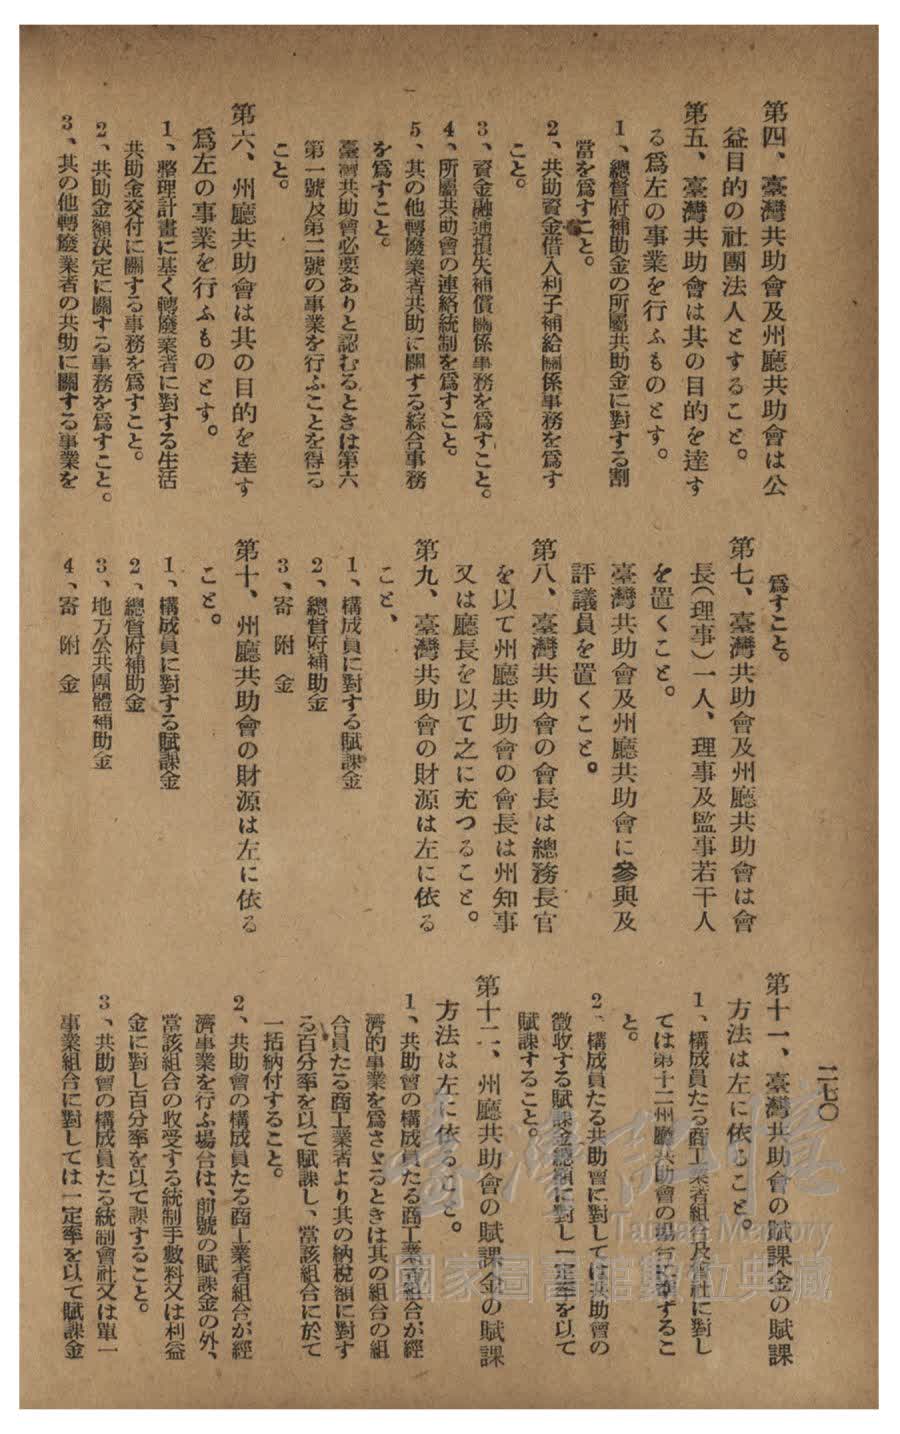 第四、臺灣共助會及州廳共助會は公
益目的の社團法人とすること。
第五、臺灣共助會は其の目的を達す
る爲左の事業を行ふものとす。
1、總督府補助金の所屬共助金に對する割
當を爲すこと。
2、共助資金借入利子補給關係事務を爲す
こと。
3、資金融通損失補償關係事務を爲すこと。
4、所屬共助會の連絡統制を爲すこと。
5、其の他轉廢業者共助に關する綜合事務
を爲すこと。
臺灣共助會必要ありと認むるときは第六
第一號及第二號の事業を行ふことを得る
こと。
第六、州廳共助會は其の目的を達す
爲左の事業を行ふものとす。
1、整理計畫に基く轉廢業者に對する生活
共助金交付に關する事務を爲すこと。
2、共助金額決定に關する事務を爲すこと。
3、其の他轉廢業者の共助に關する事業を
爲すこと。
第七、臺灣共助會及州廳共助會は會
長(理事)一人、理事及監事若干人
を置くこと。
臺灣共助會及州廳共助會に參與及
評議員を置くこと。
第八、臺灣共助會の會長は總務長官
を以て州廳共助會の會長は州知事
又は廳長を以て之に充つること。
第九、臺灣共助會の財源は左に依る
こと、
1、構成員に對する賦課金
2、總督府補助金
3、寄附金
第十、州廳共助會の財源は左に依る
こと。
1、構成員に對する賦課金
2、總督府補助金
3、地方公共團體補助金
4、寄附金
二七〇
第十一、臺灣共助會の賦課金の賦課
方法は左に依ること。
1、構成員たる商工業者組合及會社に對し
ては第十二州廳共助會の場合に準ずるこ
と。
2、構成員たる共助會に對しては共助會の
徵收する賦課金總額に對し一定率を以て
賦課すること。
第十二、州廳共助會の賦課金の賦課
方法は左に依ること。
1、共助會の構成員たる商工業者組合が經
濟的事業を爲さゞるときは其の組合の組
合員たる商工業者より其の納稅額に對す
る百分率を以て賦課し、當該組合に於て
一括納付すること。
2、共助會の構成員たる商工業者組合が經
濟事業を行ふ場合は、前號の賦課金の外、
當該組合の收受する統制手數料又は利益
金に對し百分率を以て課すること。
3、共助會の構成員たる統制會社又は單一
事業組合に對しては一定率を以て賦課金
臺灣記憶
Taiwan Memory
國家圖書館數位典藏